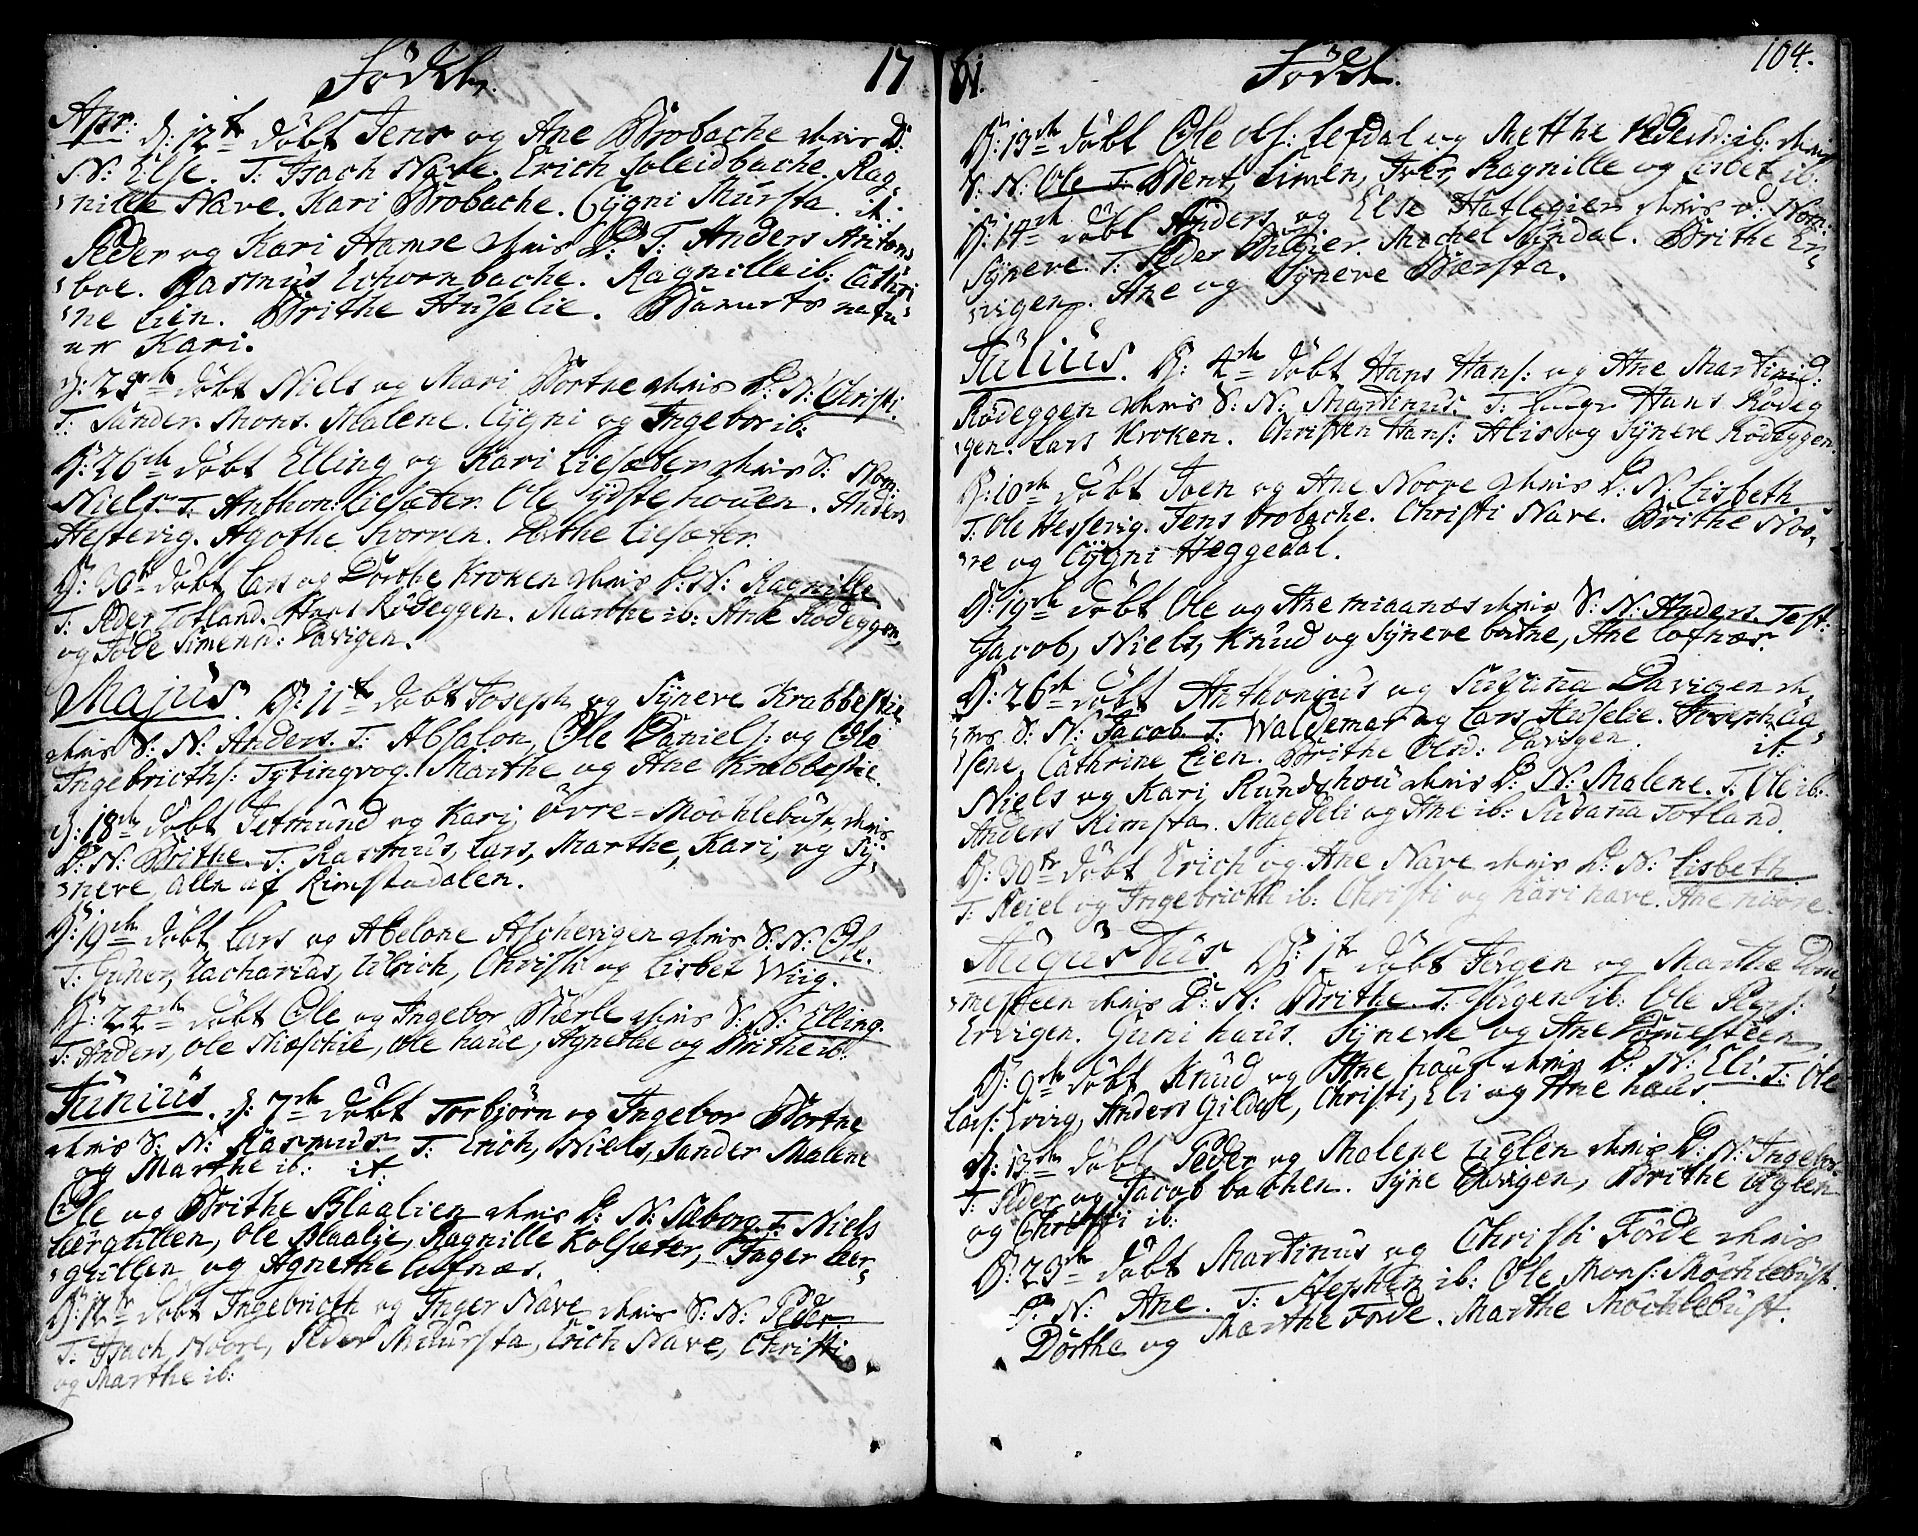 Født. 17
Apr: d: 12te døbt Jens og Ane Brobache hans D:
N: Else. T: Isach Nave. Erich Soleidbache. Rag-
nille Nave. Kari Brobache. Cygni Mursta. it.
Peder og Kari Hamre hans D: T: Anders Antons
boe. Rasmus Schornbache. Ragnille ib: Cathri
ne Lien. Brithe Huselie. Barnets nafn
er Kari.
døbt Niels og Mari Bortne hans D: N: Christi.
T: Sander. Mons. Malene. Cygni og Ingebor ib:
D: 26de døbt Elling og Kari Liesæter hans S: Nom:
Niels. T: Anthon: Liesæter. Ole Sydstehouen. Anders
Hestevig. Agathe Svorren. Liesæter.
D: 30te døbt Lars og Dorthe Kroken hans D: N: Ragnille
T: Peder Totland. Hans Rødeggen. Marthe ib: Ane Rødeggen,
og Simens: Davigen.
Majus. D: 11te døbt Joseph og Syneve Krabbestie
hans S: N: Anders. T: Absalon, Ole Daniels: og Ole
Ingebricths: Tytingvog. Marthe og Ane Krabbestie.
D: 18de døbt Jetmund og Kari Øvre=Mochlebust hans
D: N: Brithe. T: Rasmus, Lars, Marthe, Kari, og Sy-
neve alle af Rimstadalen.
D: 19de døbt Lars og Abelone Aschevigen hans S: N: Ole.
T: Guner, Zacharias, Ulrich, Christi og Lisbet Wiig.
D: 24de døbt Ole og Ingebor Hærle hans S: N: Elling.
T: Anders, Ole Niøschie, Ole haue, Agnethe og Brithe ib:
Junius. d: 7de døbt Torbjørn og Ingebor Bortne
hans S: N: Rasmus. T: Erich, Niels, Sander Malene
og Marthe ib: it
Ole og Brithe Blaalien hans D: N: Sæborg. T: Niels
Bergullen, Ole Blaalie, Ragnille Kolsæter, Inger ber-
gullen og Agnethe Lofnæs.
D: 12te døbt Ingebricth og Inger Nave hans S: N: Peder
T: Isach Noore, Peder Muursta, Erich Nave, Christi
og Marthe ib:
61. Født. 104.
D: 13de døbt Ole Ols: Lefdal og Metthe Pedersd: ib: hans
S: N: Ole T: Bent, Simen, Iver, Ragnille og Lisbet ib:
D: 14de døbt Anders og Else Hatlegier hans D: Nom:
Syneve. T: Peder Michel Sundal. Brithe Er-
vigen. Ane og Syneve Bærsta.
Julius. D: 4de døbt Hans Hans: og Ane Martinid:
Rødeggen hans S: N: Martinus. T: Hans Rødeg
gen. Lars Kroken. Christen Hans: Alis og Syneve Rødeggen.
D: 10de døbt Joen og Ane Noore hans D: N: Lisbeth
T: Ole Hessevig. Jens Brobache. Christi Nave. Brithe Noo-
re og Cygni Heggedal.
D: 19de døbt Ole og Ane miaanæs hans S: N: Anders. Test:
Jacob, Niels, Knud og Syneve bortne, Ane Lofnæs.
D: 26de døbt Anthonius og Susana Davigen h-
ans S: N: Jacob T: Waldemar og Lars Huselie. Joseph Aa-
sene, Cathrine Lien. Brithe Olsd: Davigen. it:
Niels og Kari Rundshou hans D: N: Malene. T: Ole ib:
Anders Rimsta. Magdeli og Ane ib: Susana Totland.
D: 30te døbt Erich og Ane Nave hans D: N: Lisbeth
T: Reiel og Ingebricth ib: Christi og Kari nave. Ane noore.
Augustus. D: 1te døbt Jørgen og Marthe Dom-
mesteen hans D: N: Brithe. T: Jørgen ib: Ole Pers:
Ervigen. Guni haus. Syneve og Ane Domesteen
D: 9de døbt Knud og Ane haus hans D: N: Eli. T: Ole
Lars: Anders Christi, Eli og Ane haus.
D: 13de døbt Peder og Malene Uglen hans D: N: Ingebor.
T: Peder og Jacob bachen. Syne Ervigen, Brithe Uglen
og Christi ib:
D: 23de døbt Martinus og Christi Førde hans
D: N: Ane. T: Stephen ib: Ole Mons: Mochlebust.
Dorthe og Marthe Førde. Marthe Mochlebust.